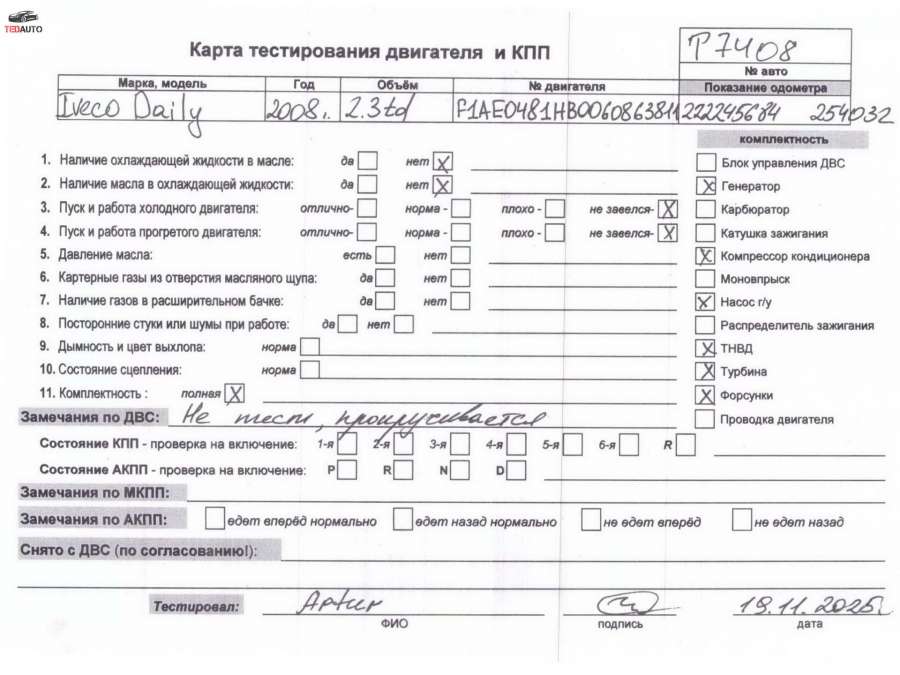 TEDAUTO
Карта тестирования двигателя и КПП
T7408
№ авто
Марка, модель Год Объём № двигателя Показание одометра
Iveco Daily 2008г. 2.3td F1AE0481HB0060863811 222245684 254032
комплектность
1. Наличие охлаждающей жидкости в масле: да нет X
Блок управления ДВС
2. Наличие масла в охлаждающей жидкости: да нет X
X Генератор
3. Пуск и работа холодного двигателя: отлично- норма - плохо - не завелся- X
Карбюратор
4. Пуск и работа прогретого двигателя: отлично- норма - плохо - не завелся- X
Катушка зажигания
5. Давление масла: есть нет
X Компрессор кондиционера
6. Картерные газы из отверстия масляного щупа: да нет
Моновпрыск
7. Наличие газов в расширительном бачке: да нет
X Насос г/у
8. Посторонние стуки или шумы при работе: да нет
Распределитель зажигания
9. Дымность и цвет выхлопа: норма
X ТНВД
10. Состояние сцепления: норма
X Турбина
11. Комплектность : полная X
X Форсунки
Замечания по ДВС: Не тест, прокручивается
Проводка двигателя
Состояние КПП - проверка на включение: 1-я 2-я 3-я 4-я 5-я 6-я R
Состояние АКПП - проверка на включение: P R N D
Замечания по МКПП:
Замечания по АКПП: едет вперёд нормально едет назад нормально не едет вперёд не едет назад
Снято с ДВС (по согласованию!):
Тестировал: Artur 19.11.2025г.
ФИО подпись дата